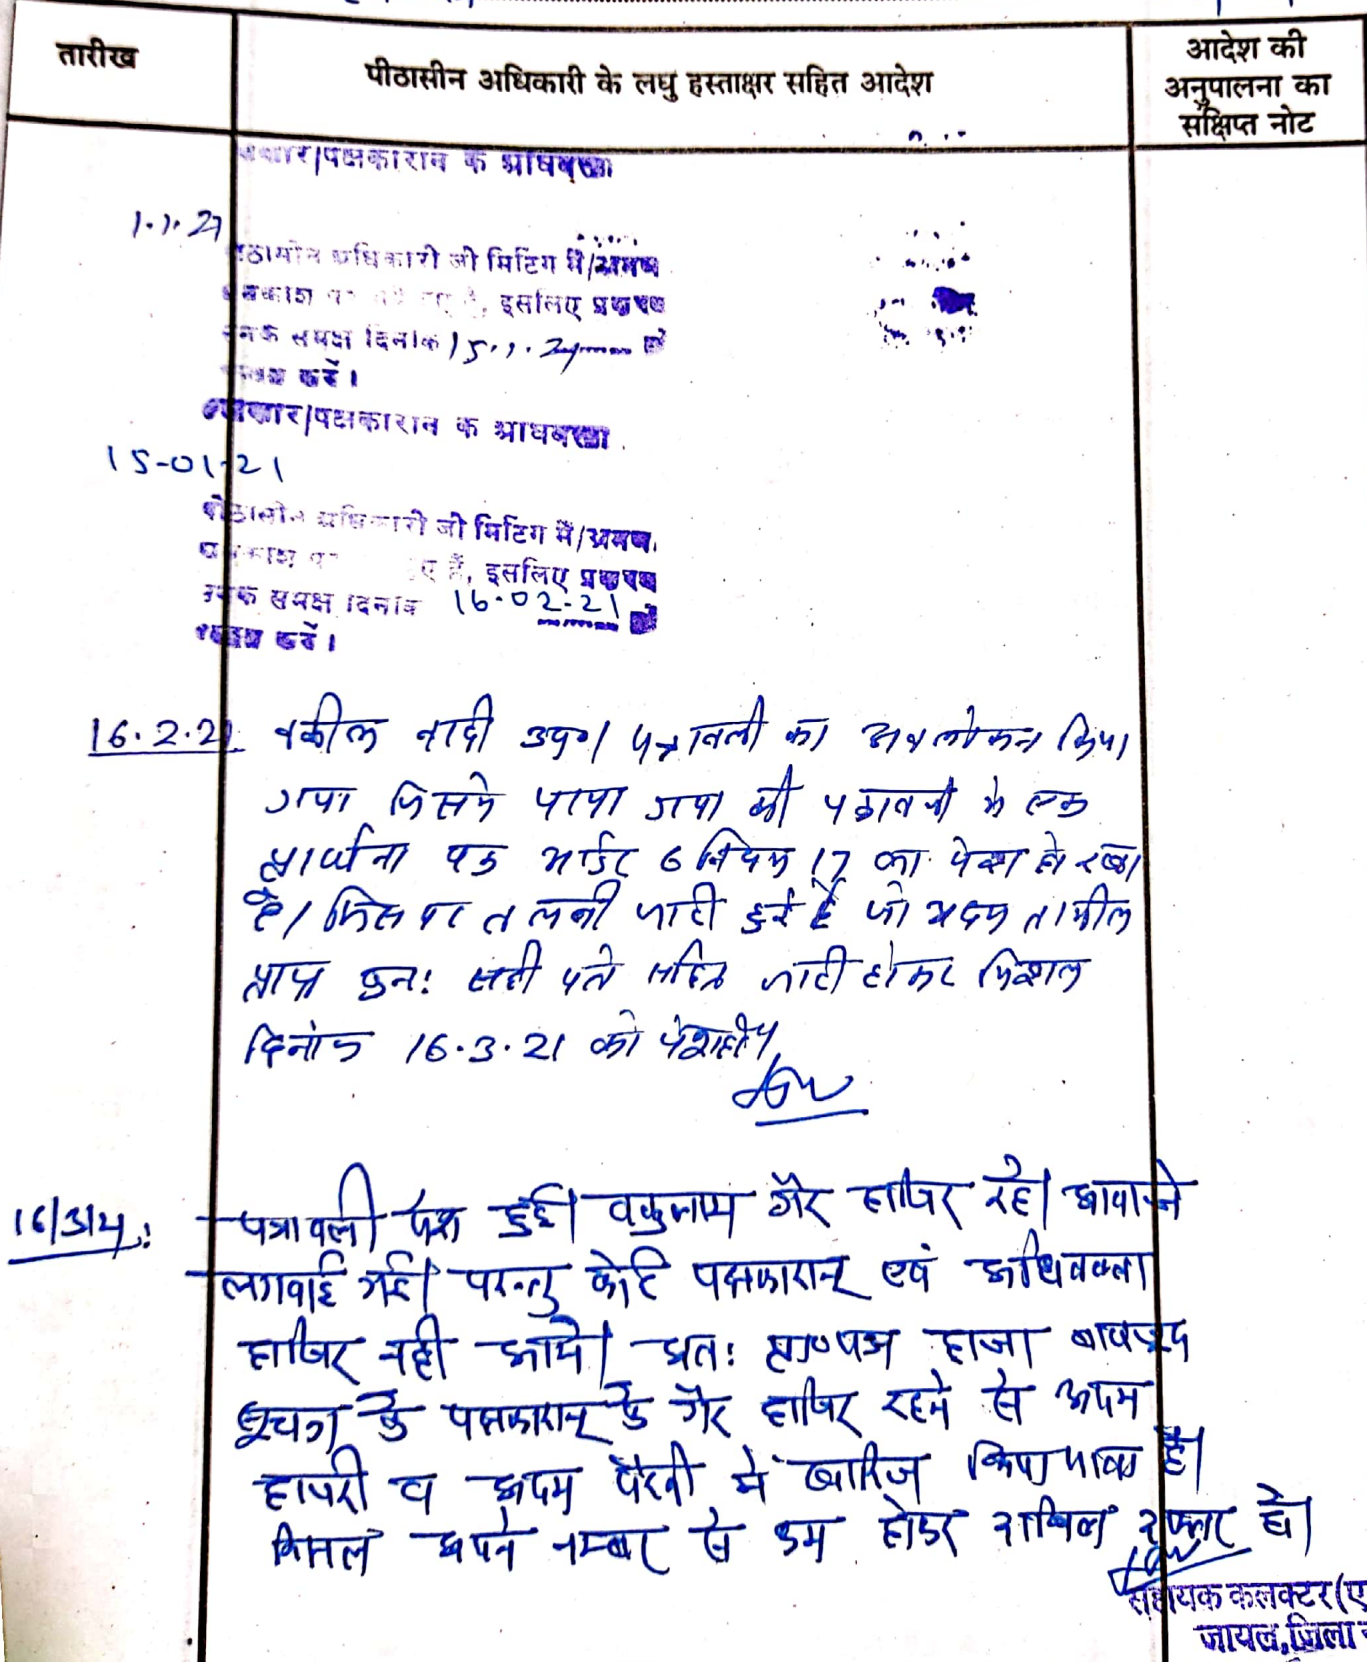 तारीख
पीठासीन अधिकारी के लघु हस्ताक्षर सहित आदेश
आदेश की
अनुपालना का
संक्षिप्त नोट
/पक्षकारान के
1.1.21
अधिकारी जी मिटिंग में/भ्रमण
इसलिए प्रकरण
समक्ष दिनांक 15.1.21 को
करें।
/पक्षकारान के
15-01-21
अधिकारी जी मिटिंग में/भ्रमण
हैं, इसलिए प्रकरण
उनके समक्ष दिनांक 16.02.21 को
करें।
16.2.21 वकील वादी उप०। पत्रावली का अवलोकन किया
गया जिसमे पाया गया की पत्रावली मे एक
प्रार्थना पत्र आर्डर 6 नियम 17 का पेश हो रखा
है। जिस पर तलबी जारी हुई है जो अदम तामील
प्राप्त पुन: सही पते सहित जारी होकर मिशल
दिनांक 16.3.21 को पेश हो।
पत्रावली पेश हुई। वकुलाय गैर हाजिर रहे। आवाजे
लगवाई गई। परन्तु कोई पक्षकारान् एवं अधिवक्ता
हाजिर नही आये। अत: प्रा०पत्र हाजा बावजूद
सूचना के पक्षकारान् के गैर हाजिर रहने से अदम
हाजरी व अदम पैरवी मे खारिज किया जाता है।
मिसल अपने नम्बर से कम होकर दाखिल दफ्तर हो।
सहायक कलक्टर(ए
जायल, जिला